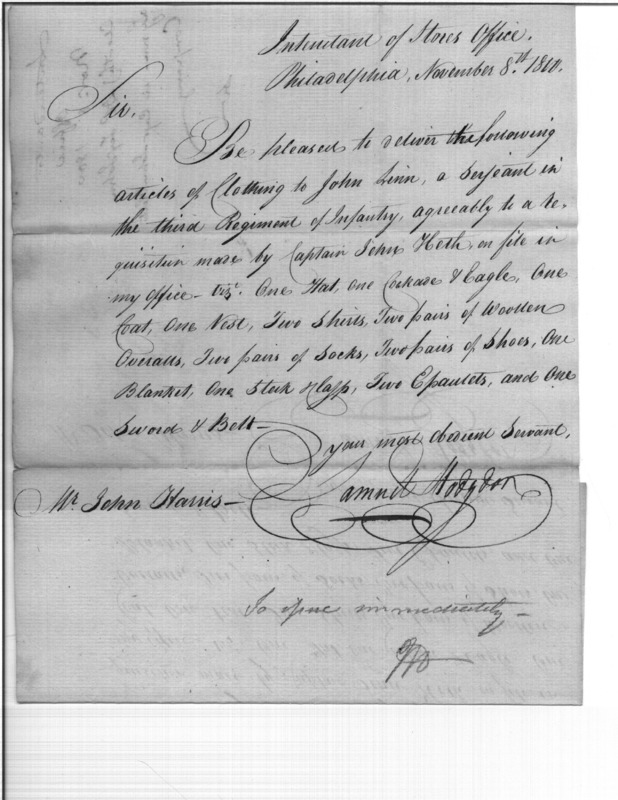 Intendant of Stores Office,
Philadelphia, November 8th. 1800.
Sir,
Be pleased to deliver the following
articles of Clothing to John Linn, a Serjeant in
the third Regiment of Infantry, agreeably to a re-
quisition made by Captain John Heth, on file in
my office - vizt. One Hat, one Cockade & Eagle, One
Coat, One Vest, Two Shirts, Two pairs of Woollen
Overalls, Two pairs of Socks, Two pairs of Shoes, One
Blanket, One Stock & Clasp, Two Epaulets, and One
Sword & Belt -
your most obedient Servant,
Samuel Hodgdon
Mr. John Harris -
To issue immediately -